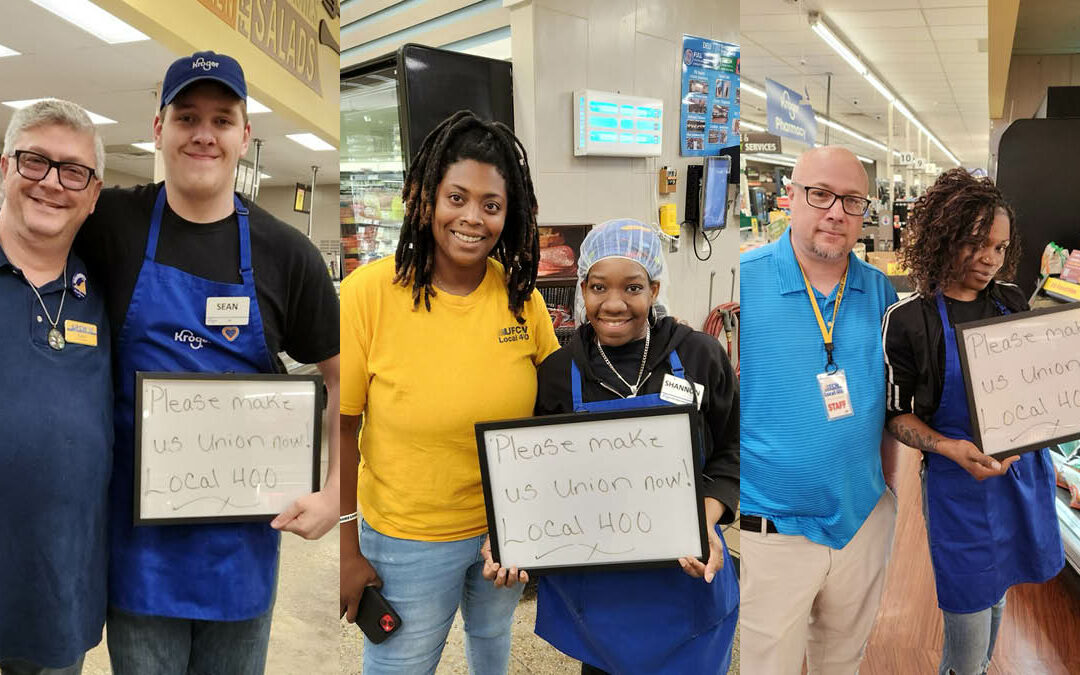 SALADS
Kroger
SEAN
Kroger
Please make
us Union now!
Local 400
DELI
UFCW
Local 400
SHANNO
Please make
us Union now!
Local 400
Kroger
Pharmacy
SERVICES
10
9
Local 400
STAFF
Please mak
us Union
Local 40